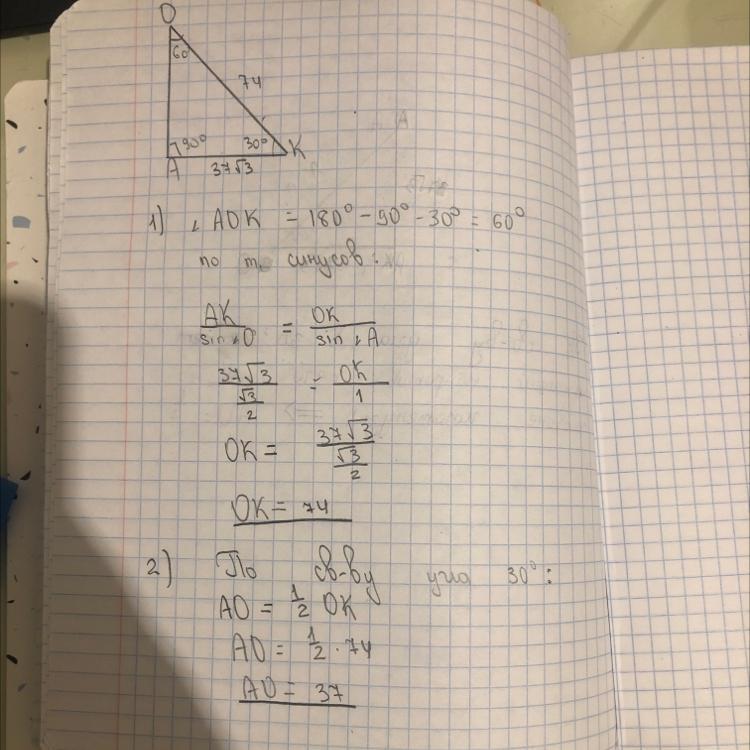 O
60
74
90°
30°
K
A
37√3
1) ∠AOK = 180° - 90° - 30° = 60°
по т. синусов:
AK / sin∠O = OK / sin∠A
37√3 / (√3/2) = OK / 1
OK = 37√3 / (√3/2)
OK = 74
2) По св-ву угла 30°:
AO = 1/2 OK
AO = 1/2 · 74
AO = 37